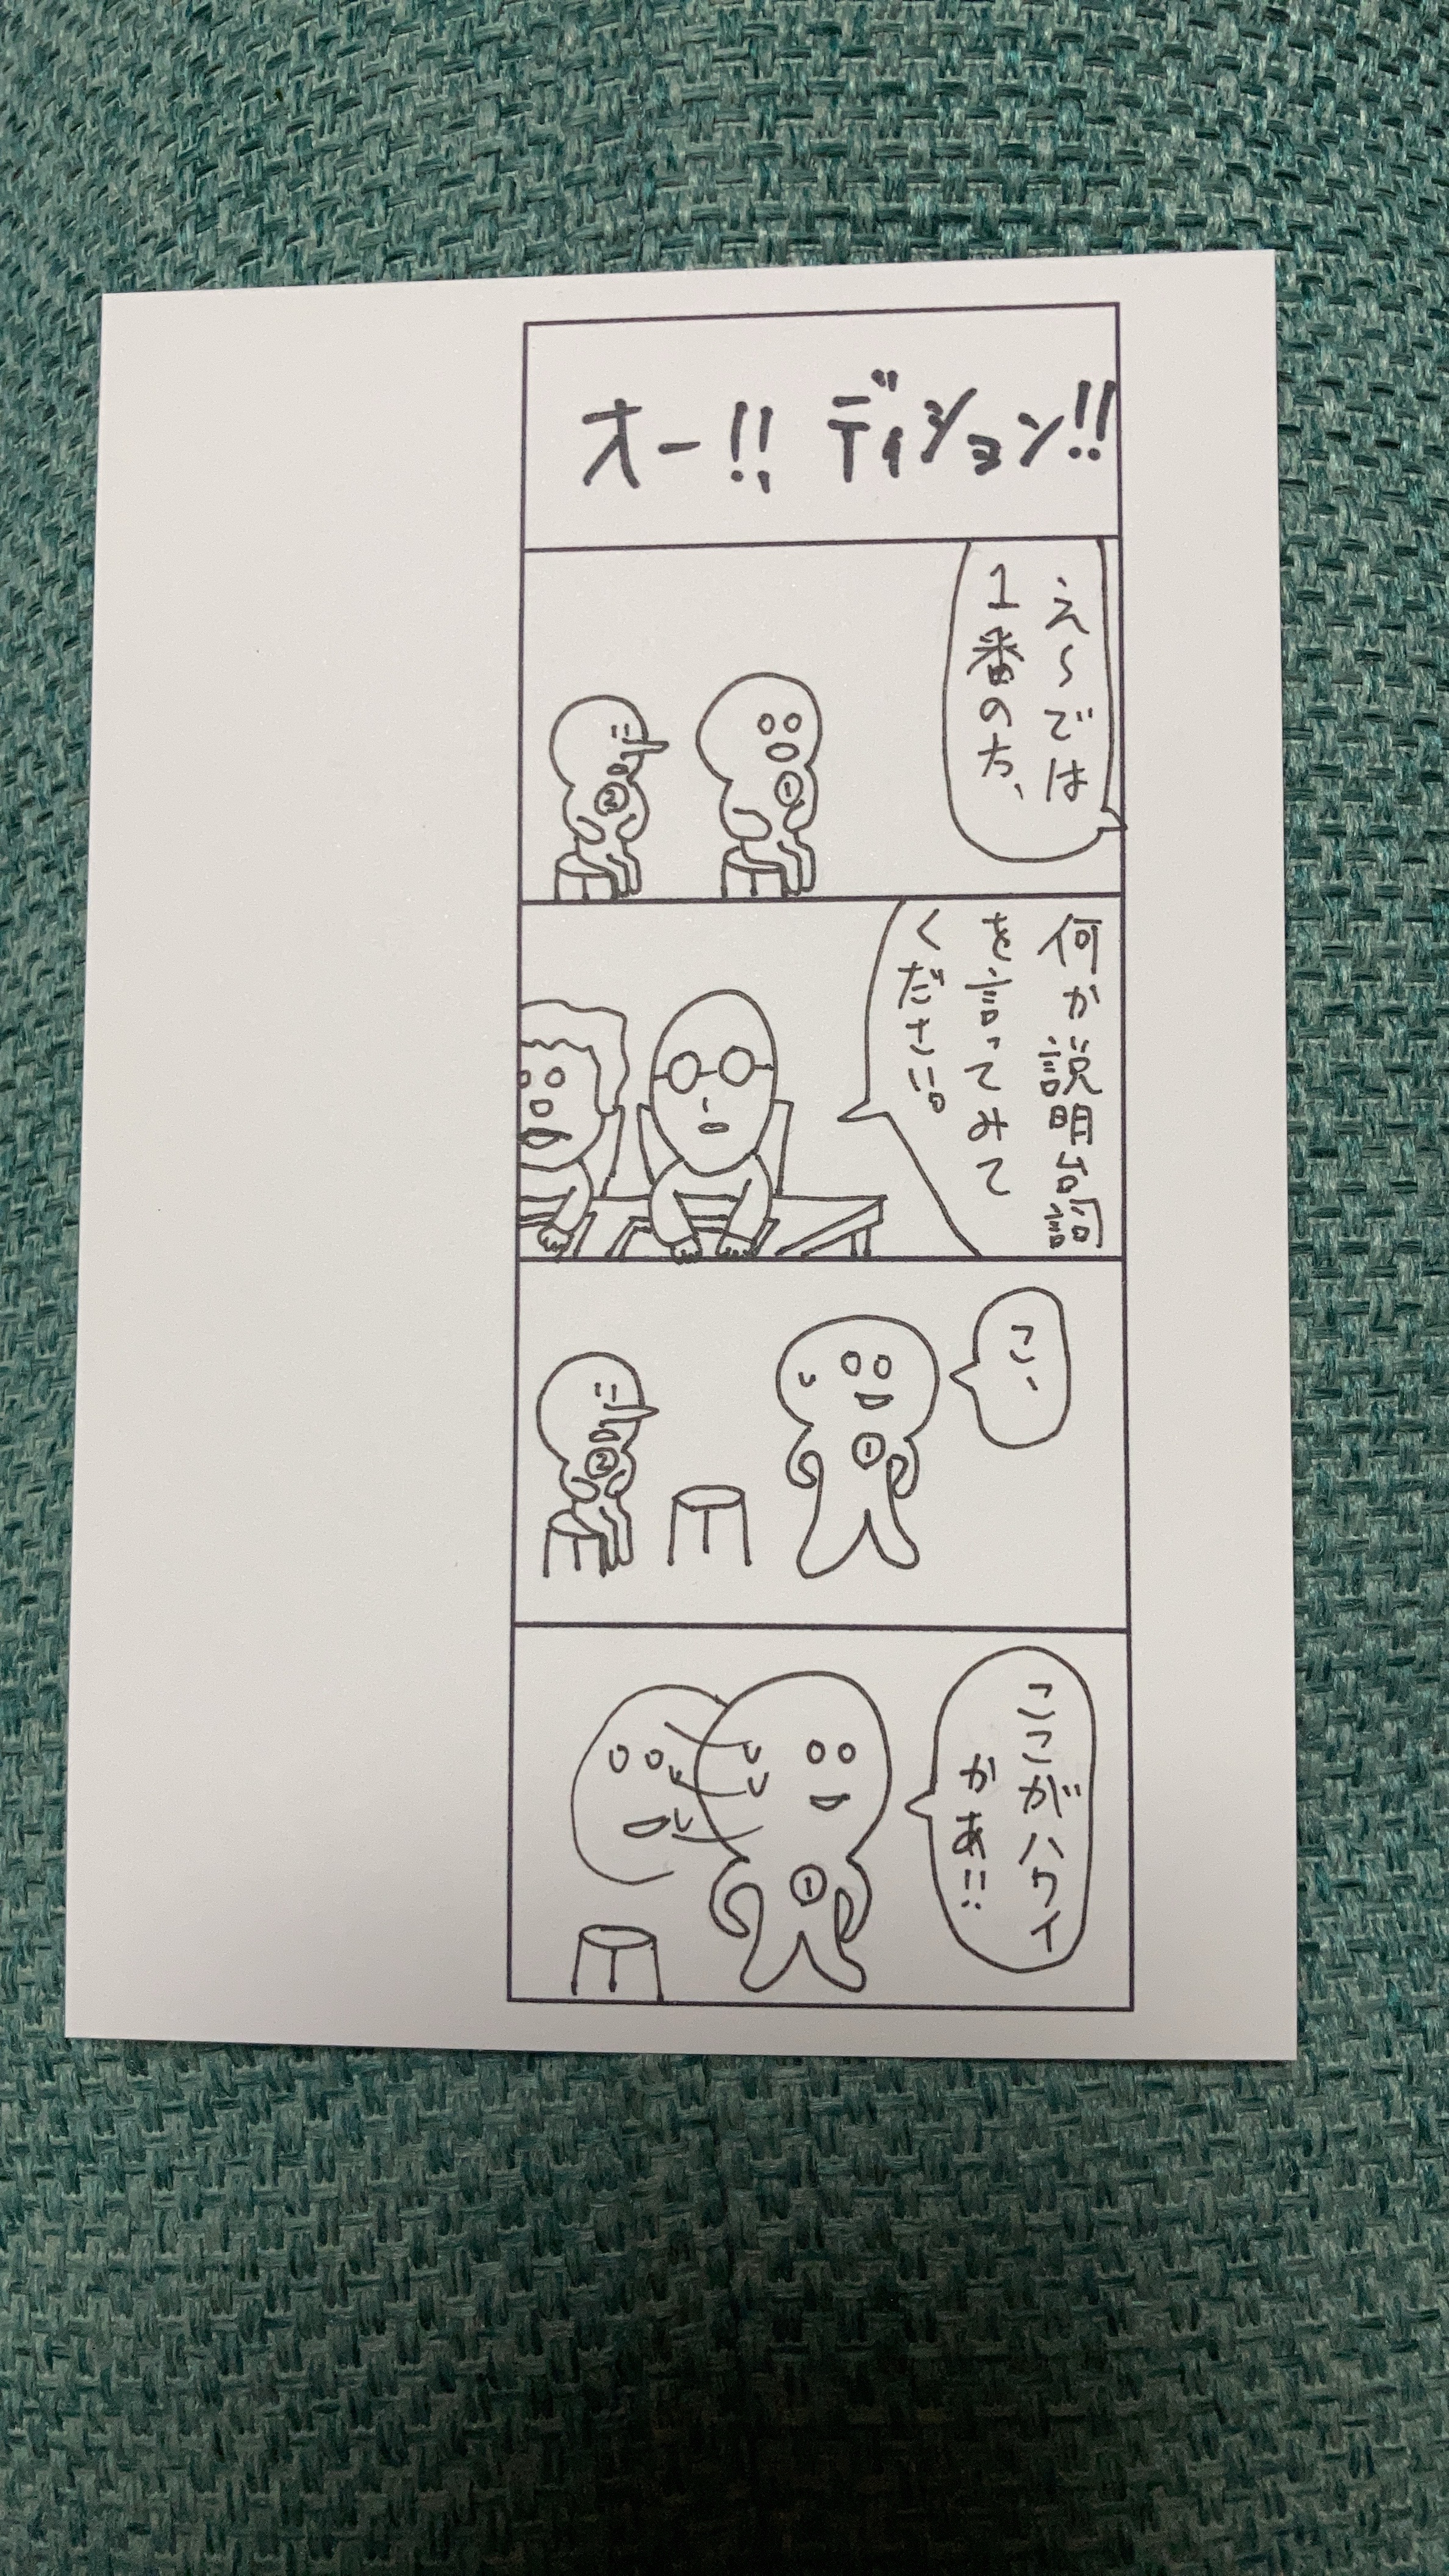 オー!! ディション!!
え〜では
1番の方、
②
①
何か説明台詞
を言ってみて
ください。
こ、
①
②
ここがハワイ
かぁ!!
①